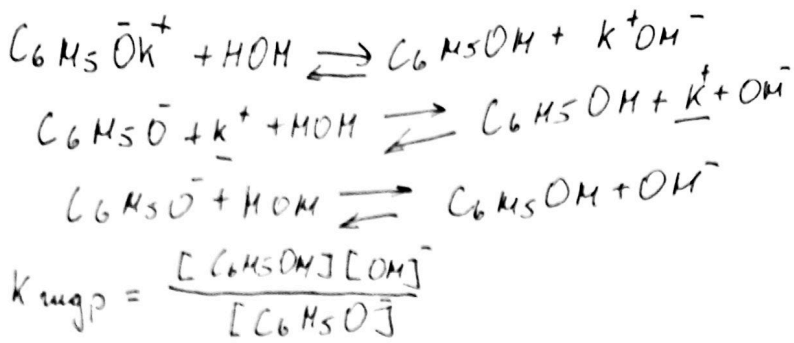 C₆H₅O⁻K⁺ + HOH ⇄ C₆H₅OH + K⁺OH⁻
C₆H₅O⁻ + K⁺ + HOH ⇄ C₆H₅OH + K⁺ + OH⁻
C₆H₅O⁻ + HOH ⇄ C₆H₅OH + OH⁻
Kгидр = [C₆H₅OH][OH]⁻ / [C₆H₅O⁻]